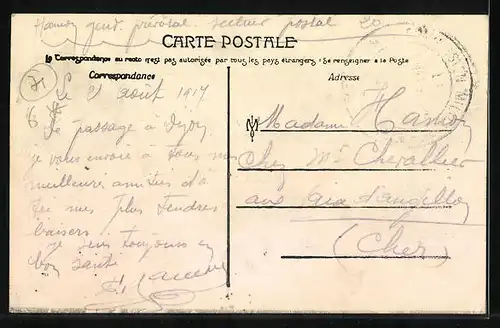 Hamon gend. prévotal. Secteur postal 20
CARTE POSTALE
La Correspondance au recto n'est pas autorisée par tous les pays étrangers (Se renseigner à la Poste
Correspondance
Adresse
71
Le 21 août 1917
De passage à Dijon
je vous envoie à tous mes
meilleures amitiés et à
toi mes plus tendres
baisers.
je suis toujours en
bonne santé
Madame Hamon
chez Mr Chevallier
aux Aix d'angillon
(Cher)